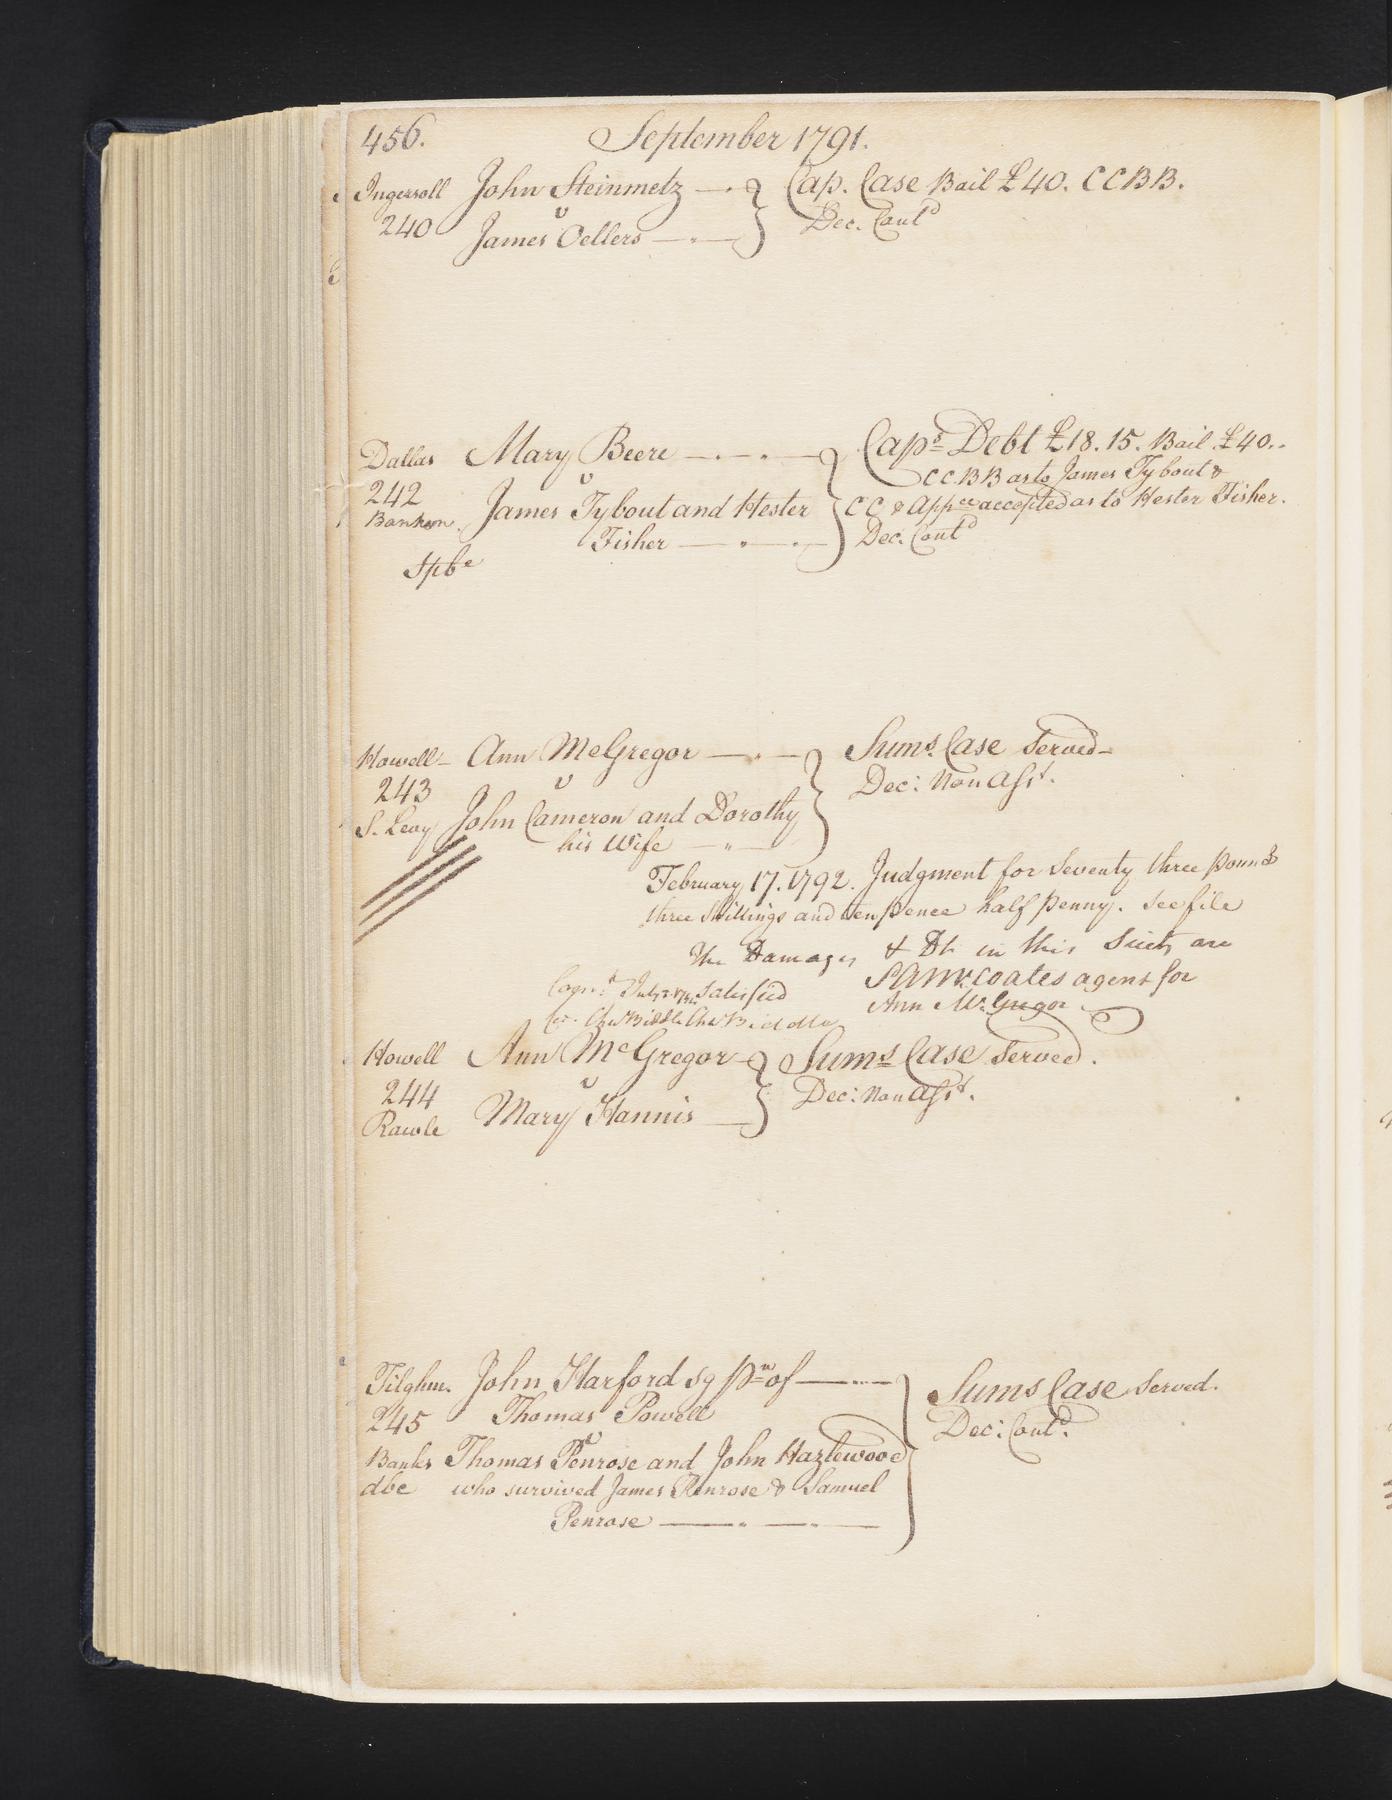 456. September 1791.
Ingersoll John Steinmetz Cap. Case Bail £40. CCBB.
240 v Dec. Cont^d
James Oellers
Dallas Mary Beere Cap^s Debt £18.15. Bail £40.
242 v C C. B B as to James Tybout &
Bankson James Tybout and Hester C C & App^ce accepted as to Hester Fisher.
Fisher Dec. Cont^d
Spb^e
Howell Ann McGregor Sums. Case Served
243 v Dec: Non Asst.
S. Levy John Cameron and Dorothy
his Wife
February 17. 1792. Judgment for Seventy three pounds
three Shillings and ten pence half penny. See file
The Damages & Dt in this Suit are
Satisfied Coates agent for
Ann McGregor
Cha^s Biddle Cha^s Biddle
Howell Ann McGregor Sum^s Case Served.
244 v Dec: Non Asst.
Rawle Mary Hannis
Tilghm. John Harford sg p^r of Sums Case Served.
245 Thomas Powell Dec: Cont^d.
v
Banks Thomas Penrose and John Hazlewood
dbe who survived James Penrose & Samuel
Penrose